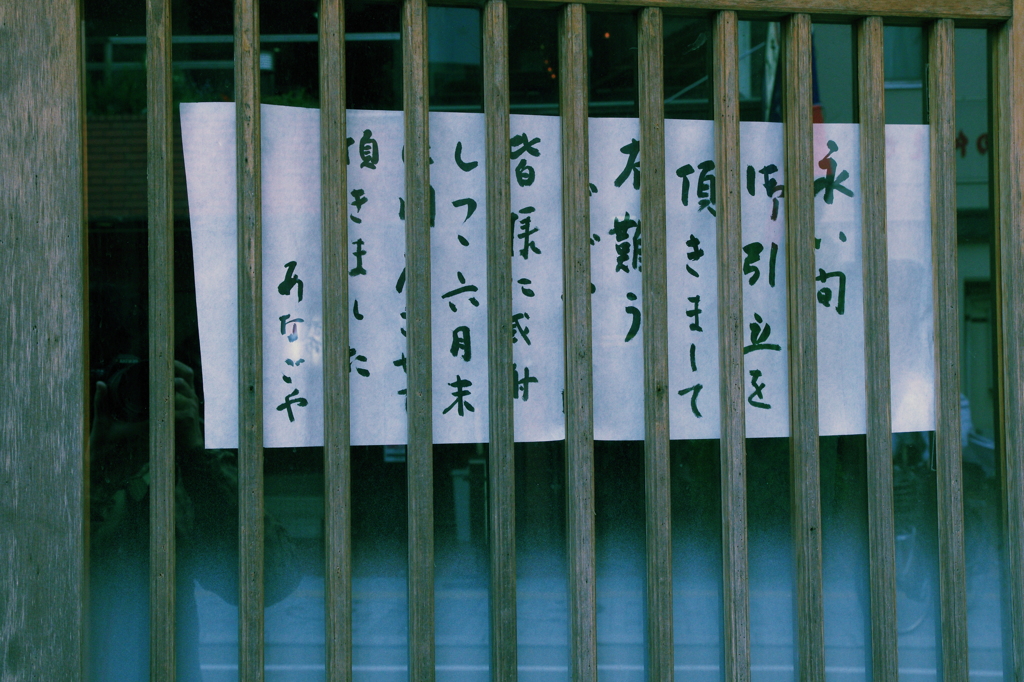 永い間
御引立を
頂きまして
有難う
皆様に感謝
しつゝ六月末
頂きました
あなごや